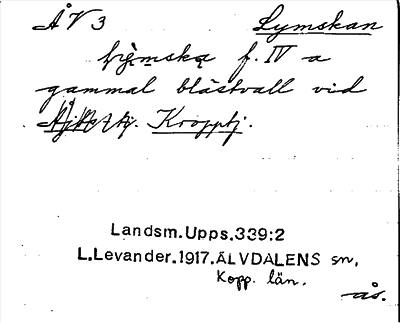 ÅV 3 Lymskan
f. IV a
gammal blästvall vid
Kröpptj.
Landsm.Upps.339:2
L.Levander.1917.ÄLVDALENS sn,
Kopp. län.
ås.